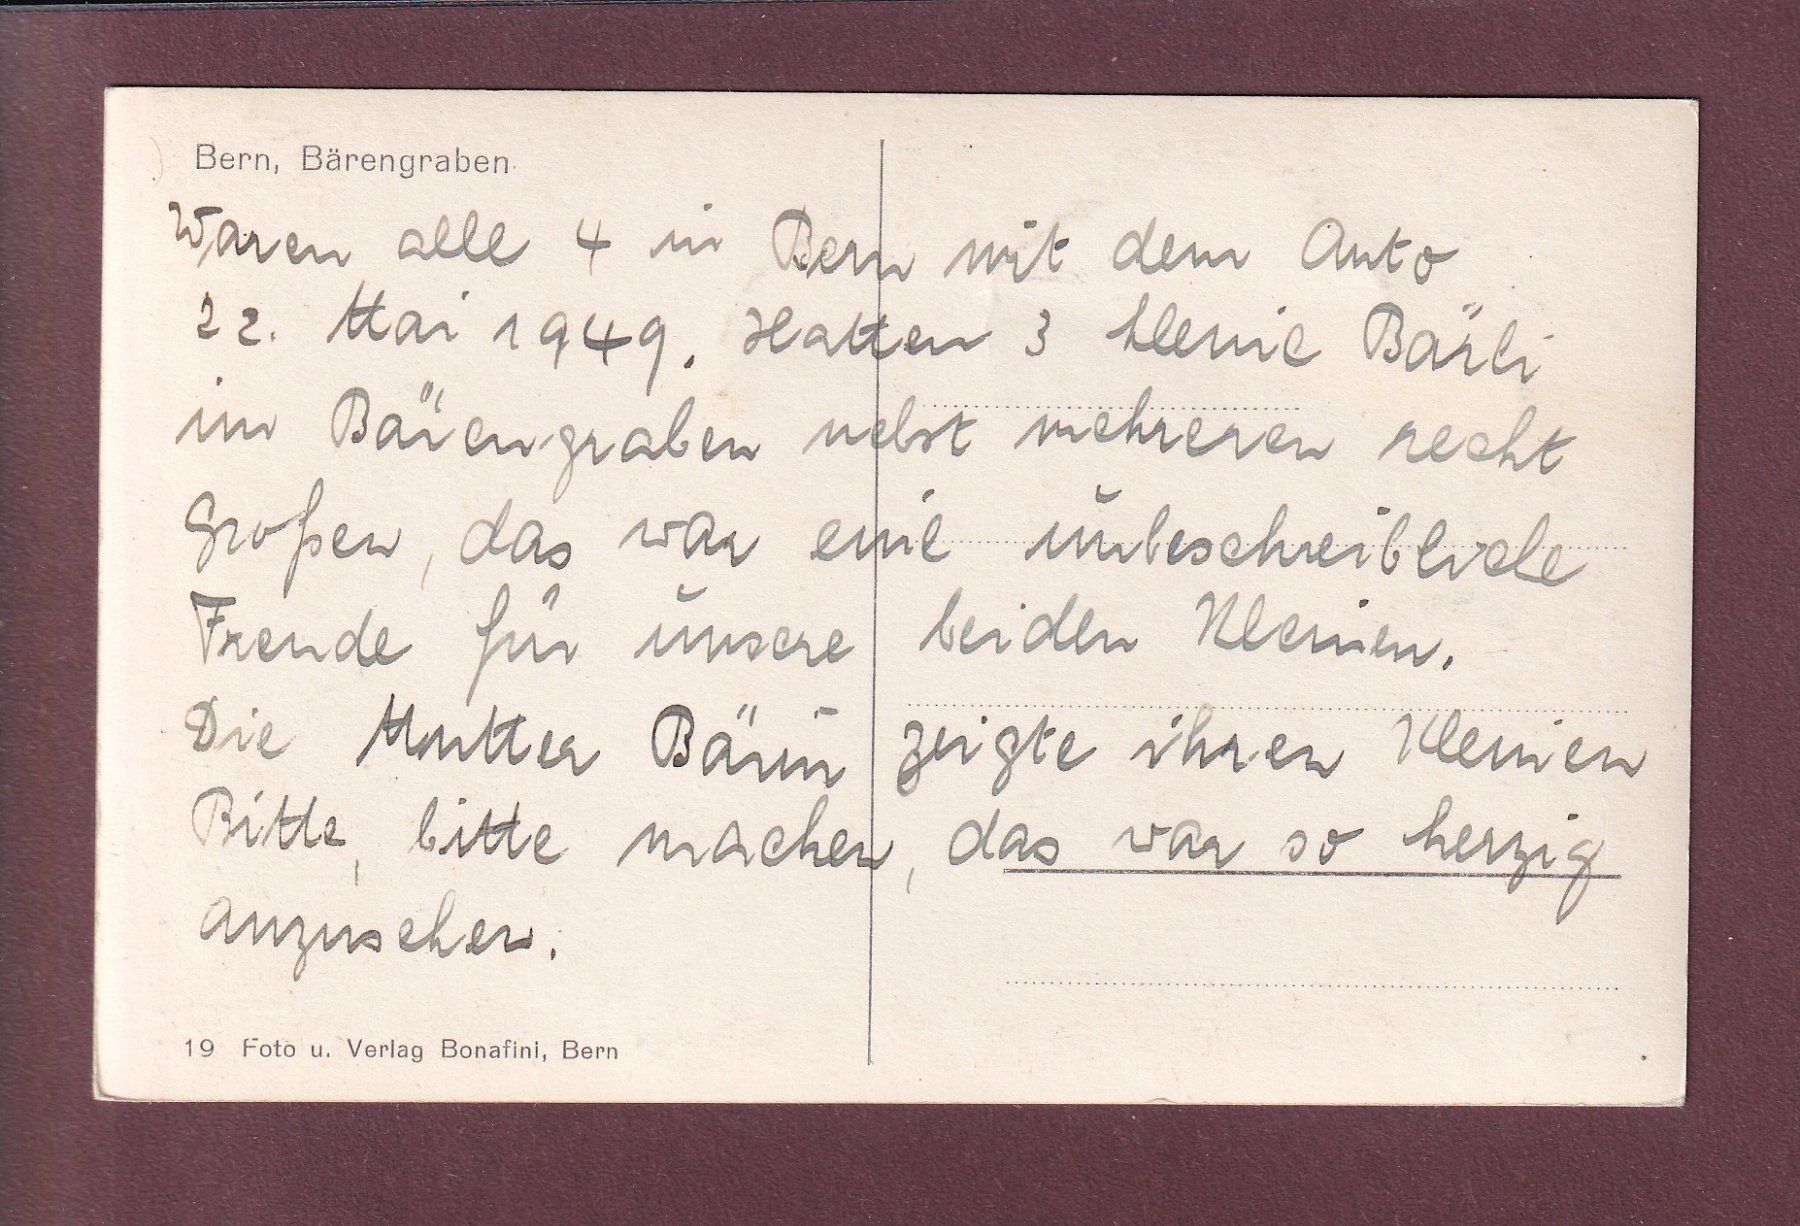 Bern, Bärengraben
Waren alle 4 in Bern mit dem Auto
22. Mai 1949. Hatten 3 kleine Bärli
im Bärengraben nebst mehreren recht
großen, das war eine unbeschreibliche
Freude für unsere beiden Kleinen.
Die Mutter Bärin zeigte ihren Kleinen
Bitte, bitte machen, das war so herzig
anzusehen.
19 Foto u. Verlag Bonafini, Bern